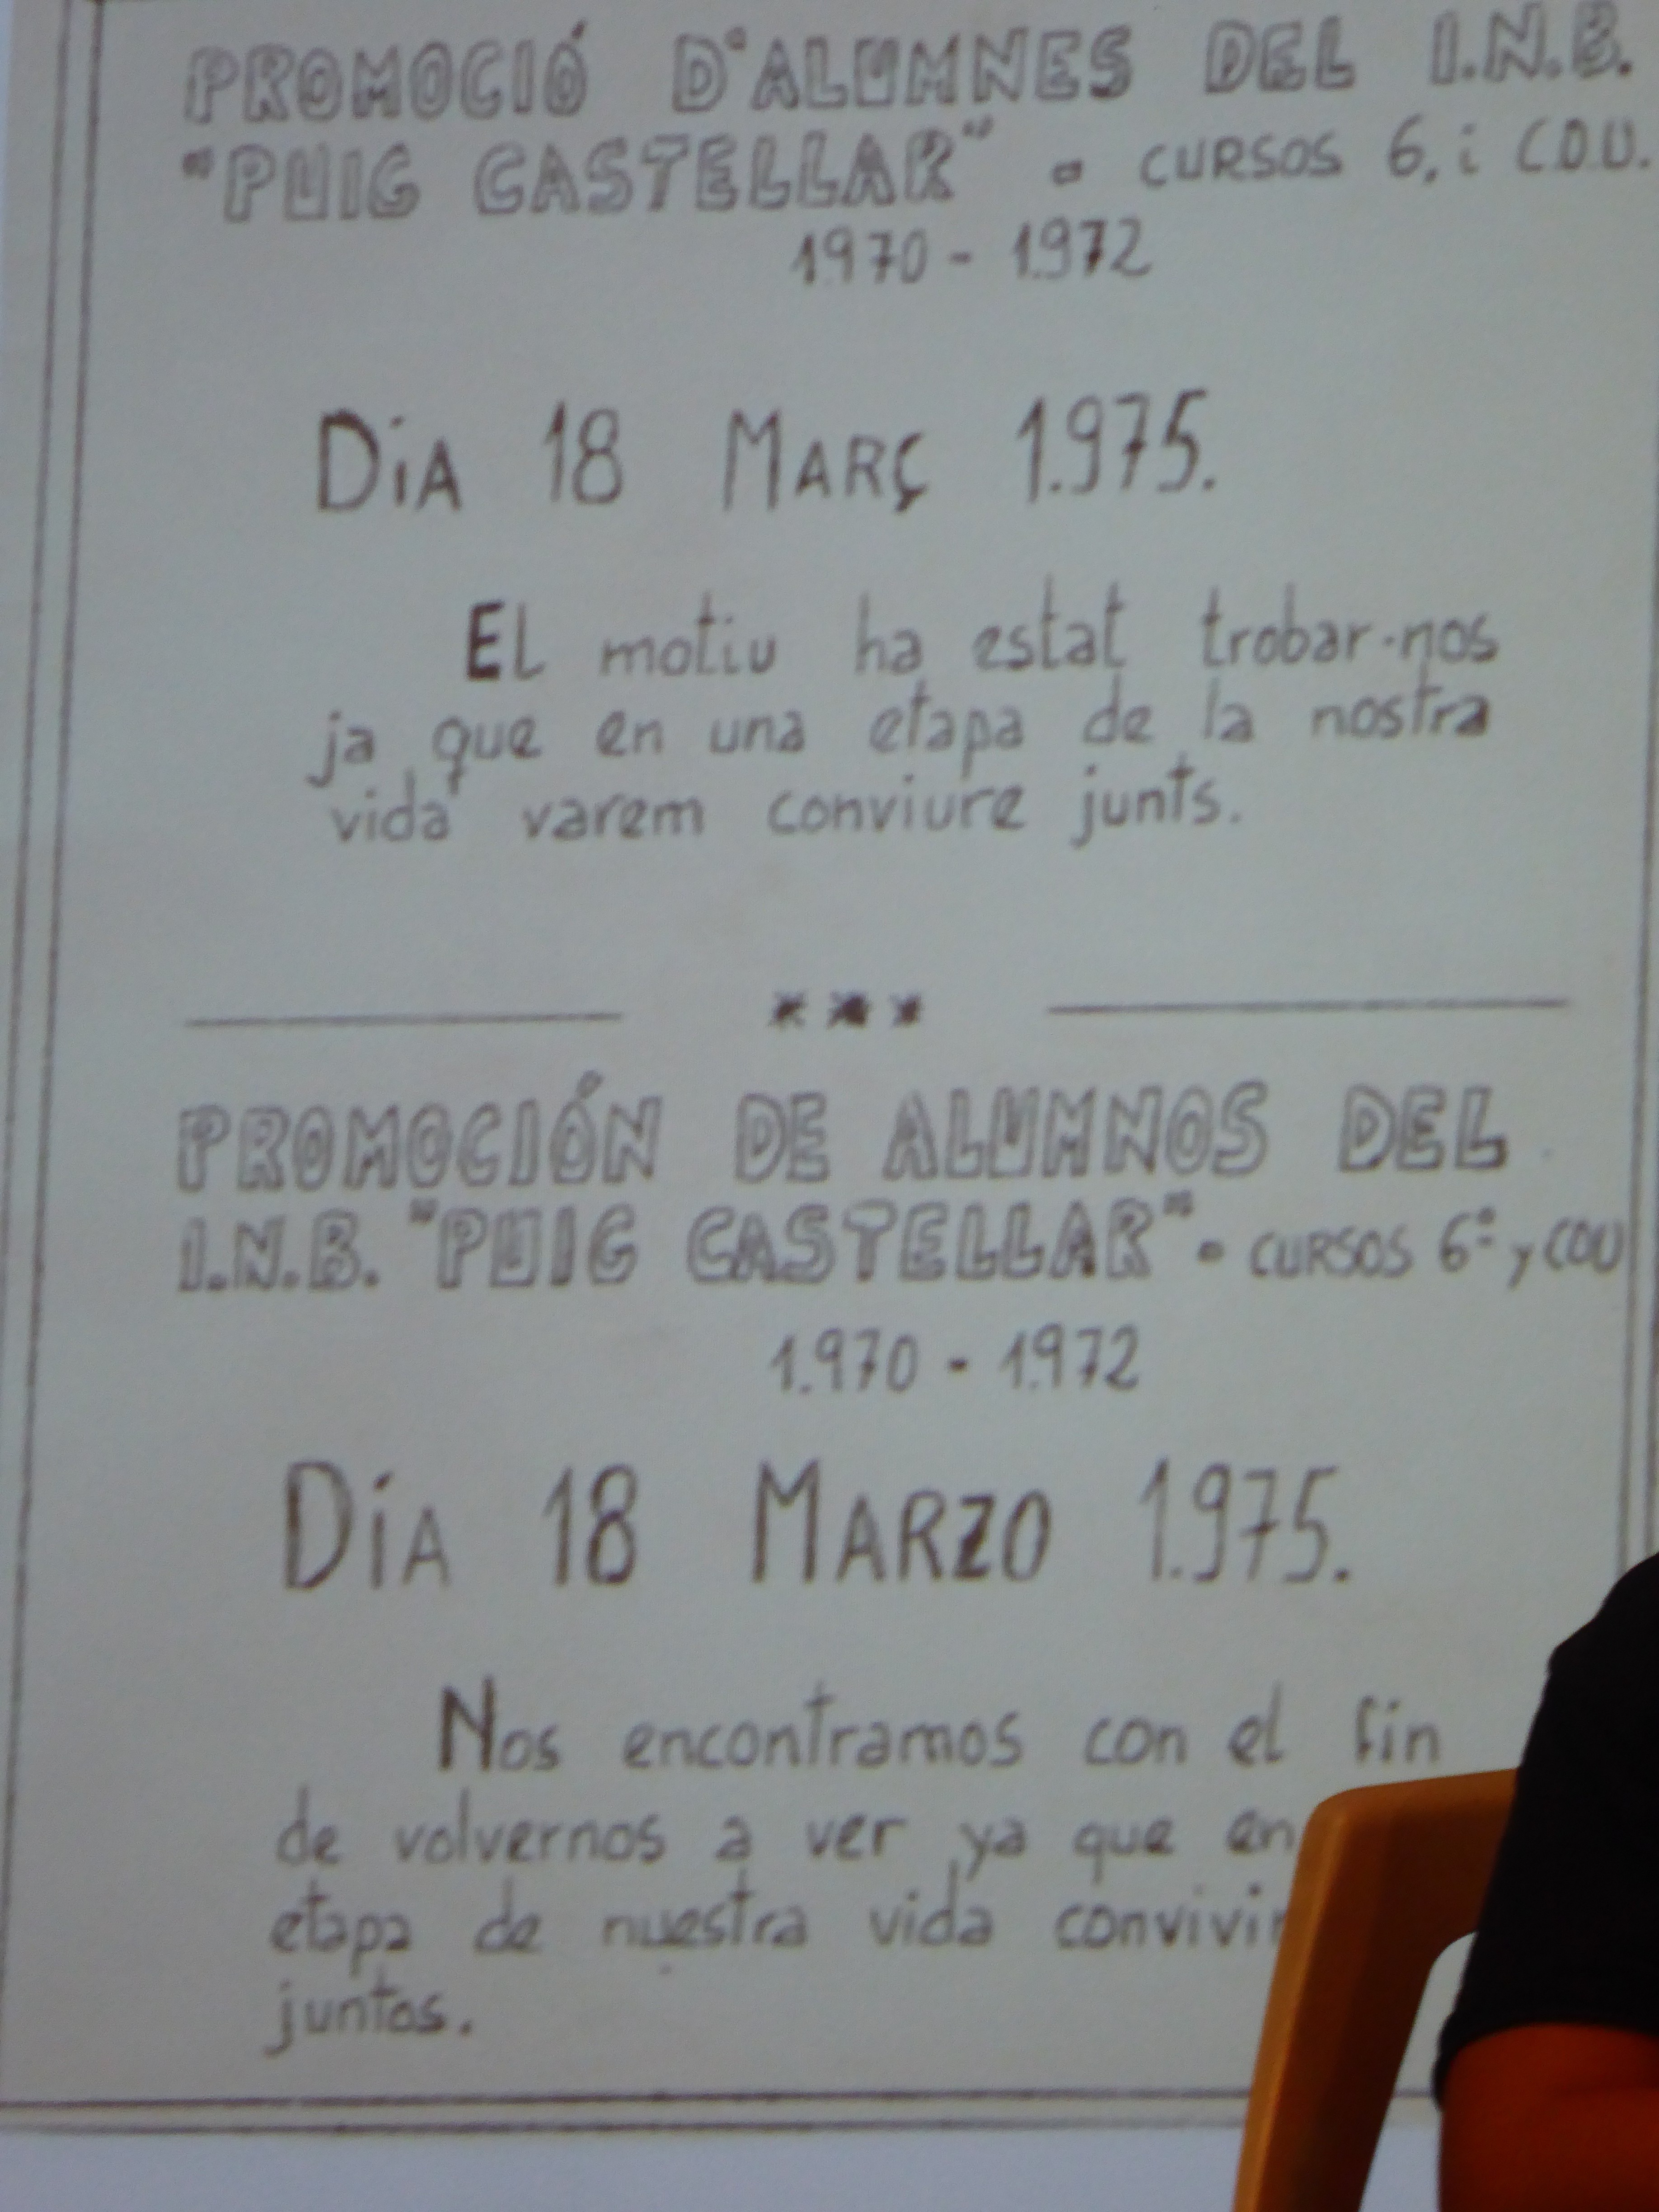 PROMOCIÓ D'ALUMNES DEL I.N.B.
"PUIG CASTELLAR" - CURSOS 6. i C.O.U.
1.970 - 1.972
DiA 18 MARÇ 1.975.
EL motiu ha estat trobar-nos
ja que en una etapa de la nostra
vida varem conviure junts.
***
PROMOCIÓN DE ALUMNOS DEL
I.N.B. "PUIG CASTELLAR" - CURSOS 6º y COU
1.970 - 1.972
DíA 18 MARZO 1.975.
Nos encontramos con el fin
de volvernos a ver, ya que en
etapa de nuestra vida
juntos.